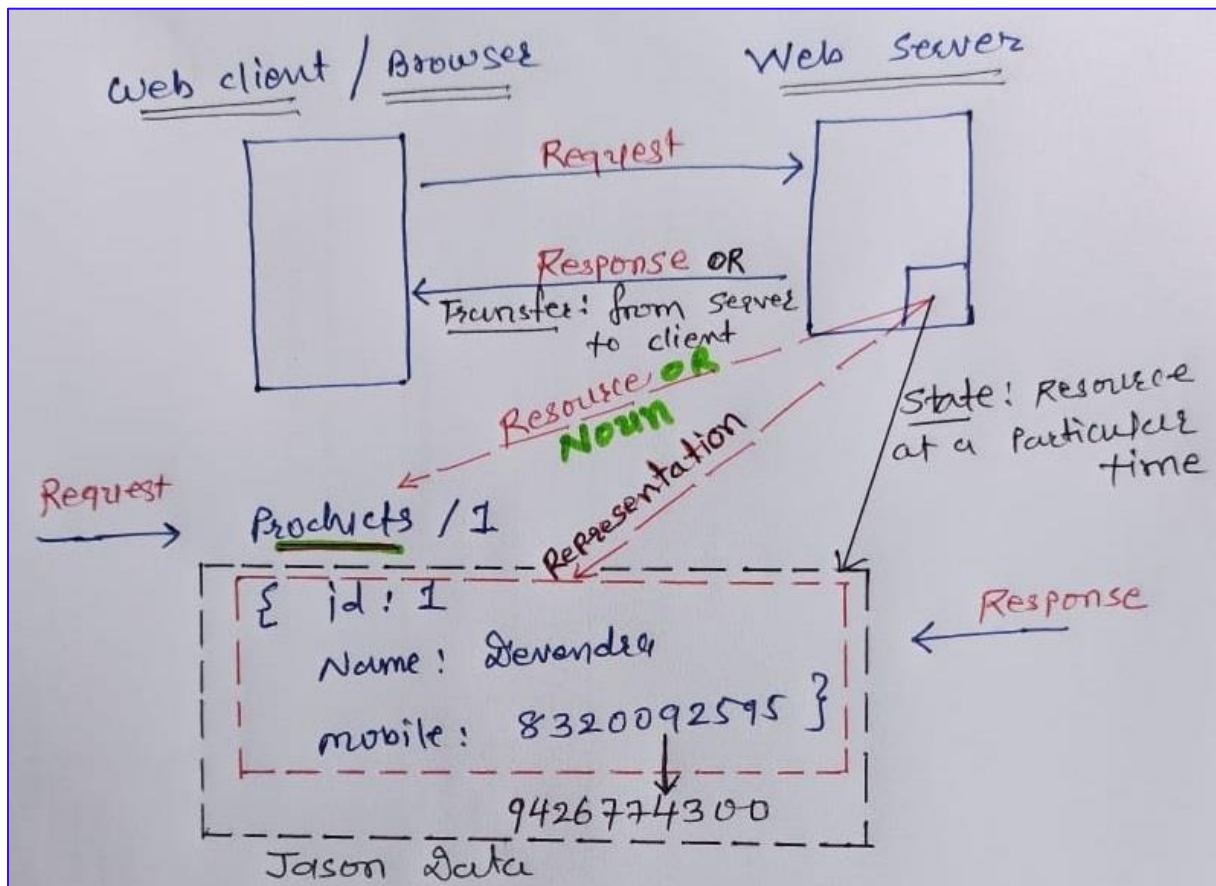 Web client / Browser
Web Server
Request
Response OR
Transfer: from server
to client
Resource OR
Noun
Representation
State: Resource
at a particular
time
Request
Products / 1
{ id: 1
Name: Devendra
mobile: 8320092595 }
9426774300
Response
Jason Data